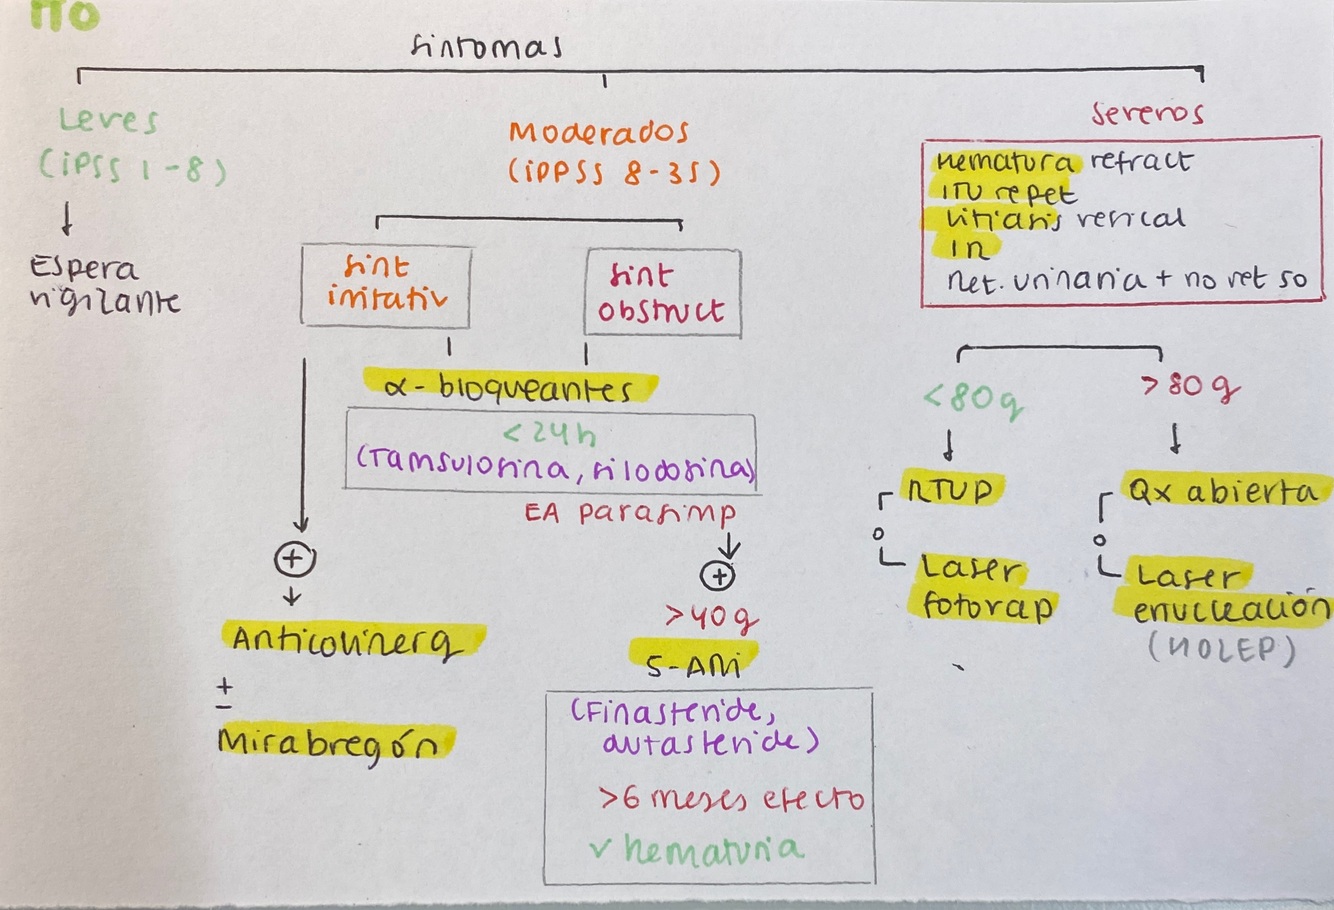 TTO
síntomas
Leves
(IPSS 1-8)
Espera
vigilante
Moderados
(IPPSS 8-35)
sínt
irritativ
sínt
obstruct
α-bloqueantes
<24h
(Tamsulosina, silodosina)
EA parasimp
+
Anticolinerg
±
Mirabregón
+
>40g
5-ARi
(Finasteride,
dutasteride)
>6 meses efecto
✓ hematuria
Severos
hematura refract
ITU repet
Litiasis vesical
IR
Ret. urinaria + no ret so
<80g
RTUP
o
Laser
fotovap
>80g
Qx abierta
o
Laser
enucleación
(HOLEP)